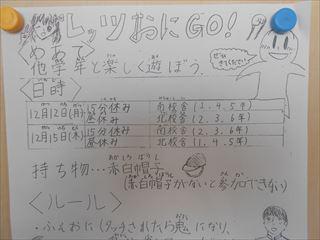 レッツおにGO!
<めあて>
他学年と楽しく遊ぼう。
ぜひきてください!
<日時>
12月12日(月) 15分休み 南校舎(1.4.5年)
昼休み 北校舎(2.3.6年)
12月15日(木) 15分休み 南校舎(2.3.6年)
昼休み 北校舎(1.4.5年)
持ち物…赤白帽子
(赤白帽子がないと参加できない)
<ルール>
・ふえおに(タッチされたら鬼になり、